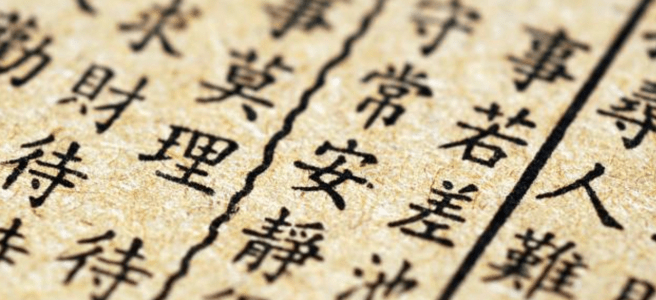 尋人難
事若差池
守常安靜
事莫理待
求財待
勸